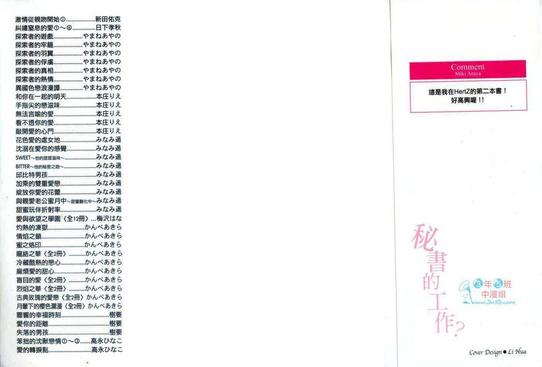 激情從親吻開始①…………新田佑克
糾纏窒息的愛①~⑥………日下孝秋
探索者的遊戲…………やまねあやの
探索者的牢籠…………やまねあやの
探索者的羽翼…………やまねあやの
探索者的俘虜…………やまねあやの
探索者的真相…………やまねあやの
探索者的熱情…………やまねあやの
異國色戀浪漫譚………やまねあやの
和你在一起的明天………本庄りえ
手指尖的戀滋味…………本庄りえ
無法言喻的愛……………本庄りえ
看不透你的愛……………本庄りえ
敲開愛的心門……………本庄りえ
花色愛的處女地…………みなみ遥
沈溺在愛你的感覺………みなみ遥
SWEET
みなみ遥
BITTER
みなみ遥
邱比特男孩………………みなみ遥
加乘的雙重愛戀…………みなみ遥
綻放你愛的花蕾…………みなみ遥
與親愛老公蜜月中
みなみ遥
甜蜜玩伴折射率…………みなみ遥
愛與欲望之學園〈全12冊〉…梅沢はな
灼熱的凍獄……………かんべあきら
情焰之鎖………………かんべあきら
蜜之烙印………………かんべあきら
籠絡之華〈全2冊〉……かんべあきら
冷藏酷熱的戀心………かんべあきら
麻煩愛的甜心…………かんべあきら
盲目的愛〈全2冊〉……かんべあきら
烈焰之華〈全2冊〉……かんべあきら
古典玫瑰的愛戀〈全2冊〉…かんべあきら
月暈下的櫻色瀰漫〈全2冊〉…かんべあきら
響響的幸福時刻……………樹要
愛你的距離…………………樹要
失落的男孩…………………樹要
笨拙的沈默戀情①~③……高永ひなこ
愛的轉捩點……………高永ひなこ
Comment
這是我在HertZ的第二本書!
好高興喔!!
秘書的工作?
年
班
中漫組
Cover Design●Li Hua